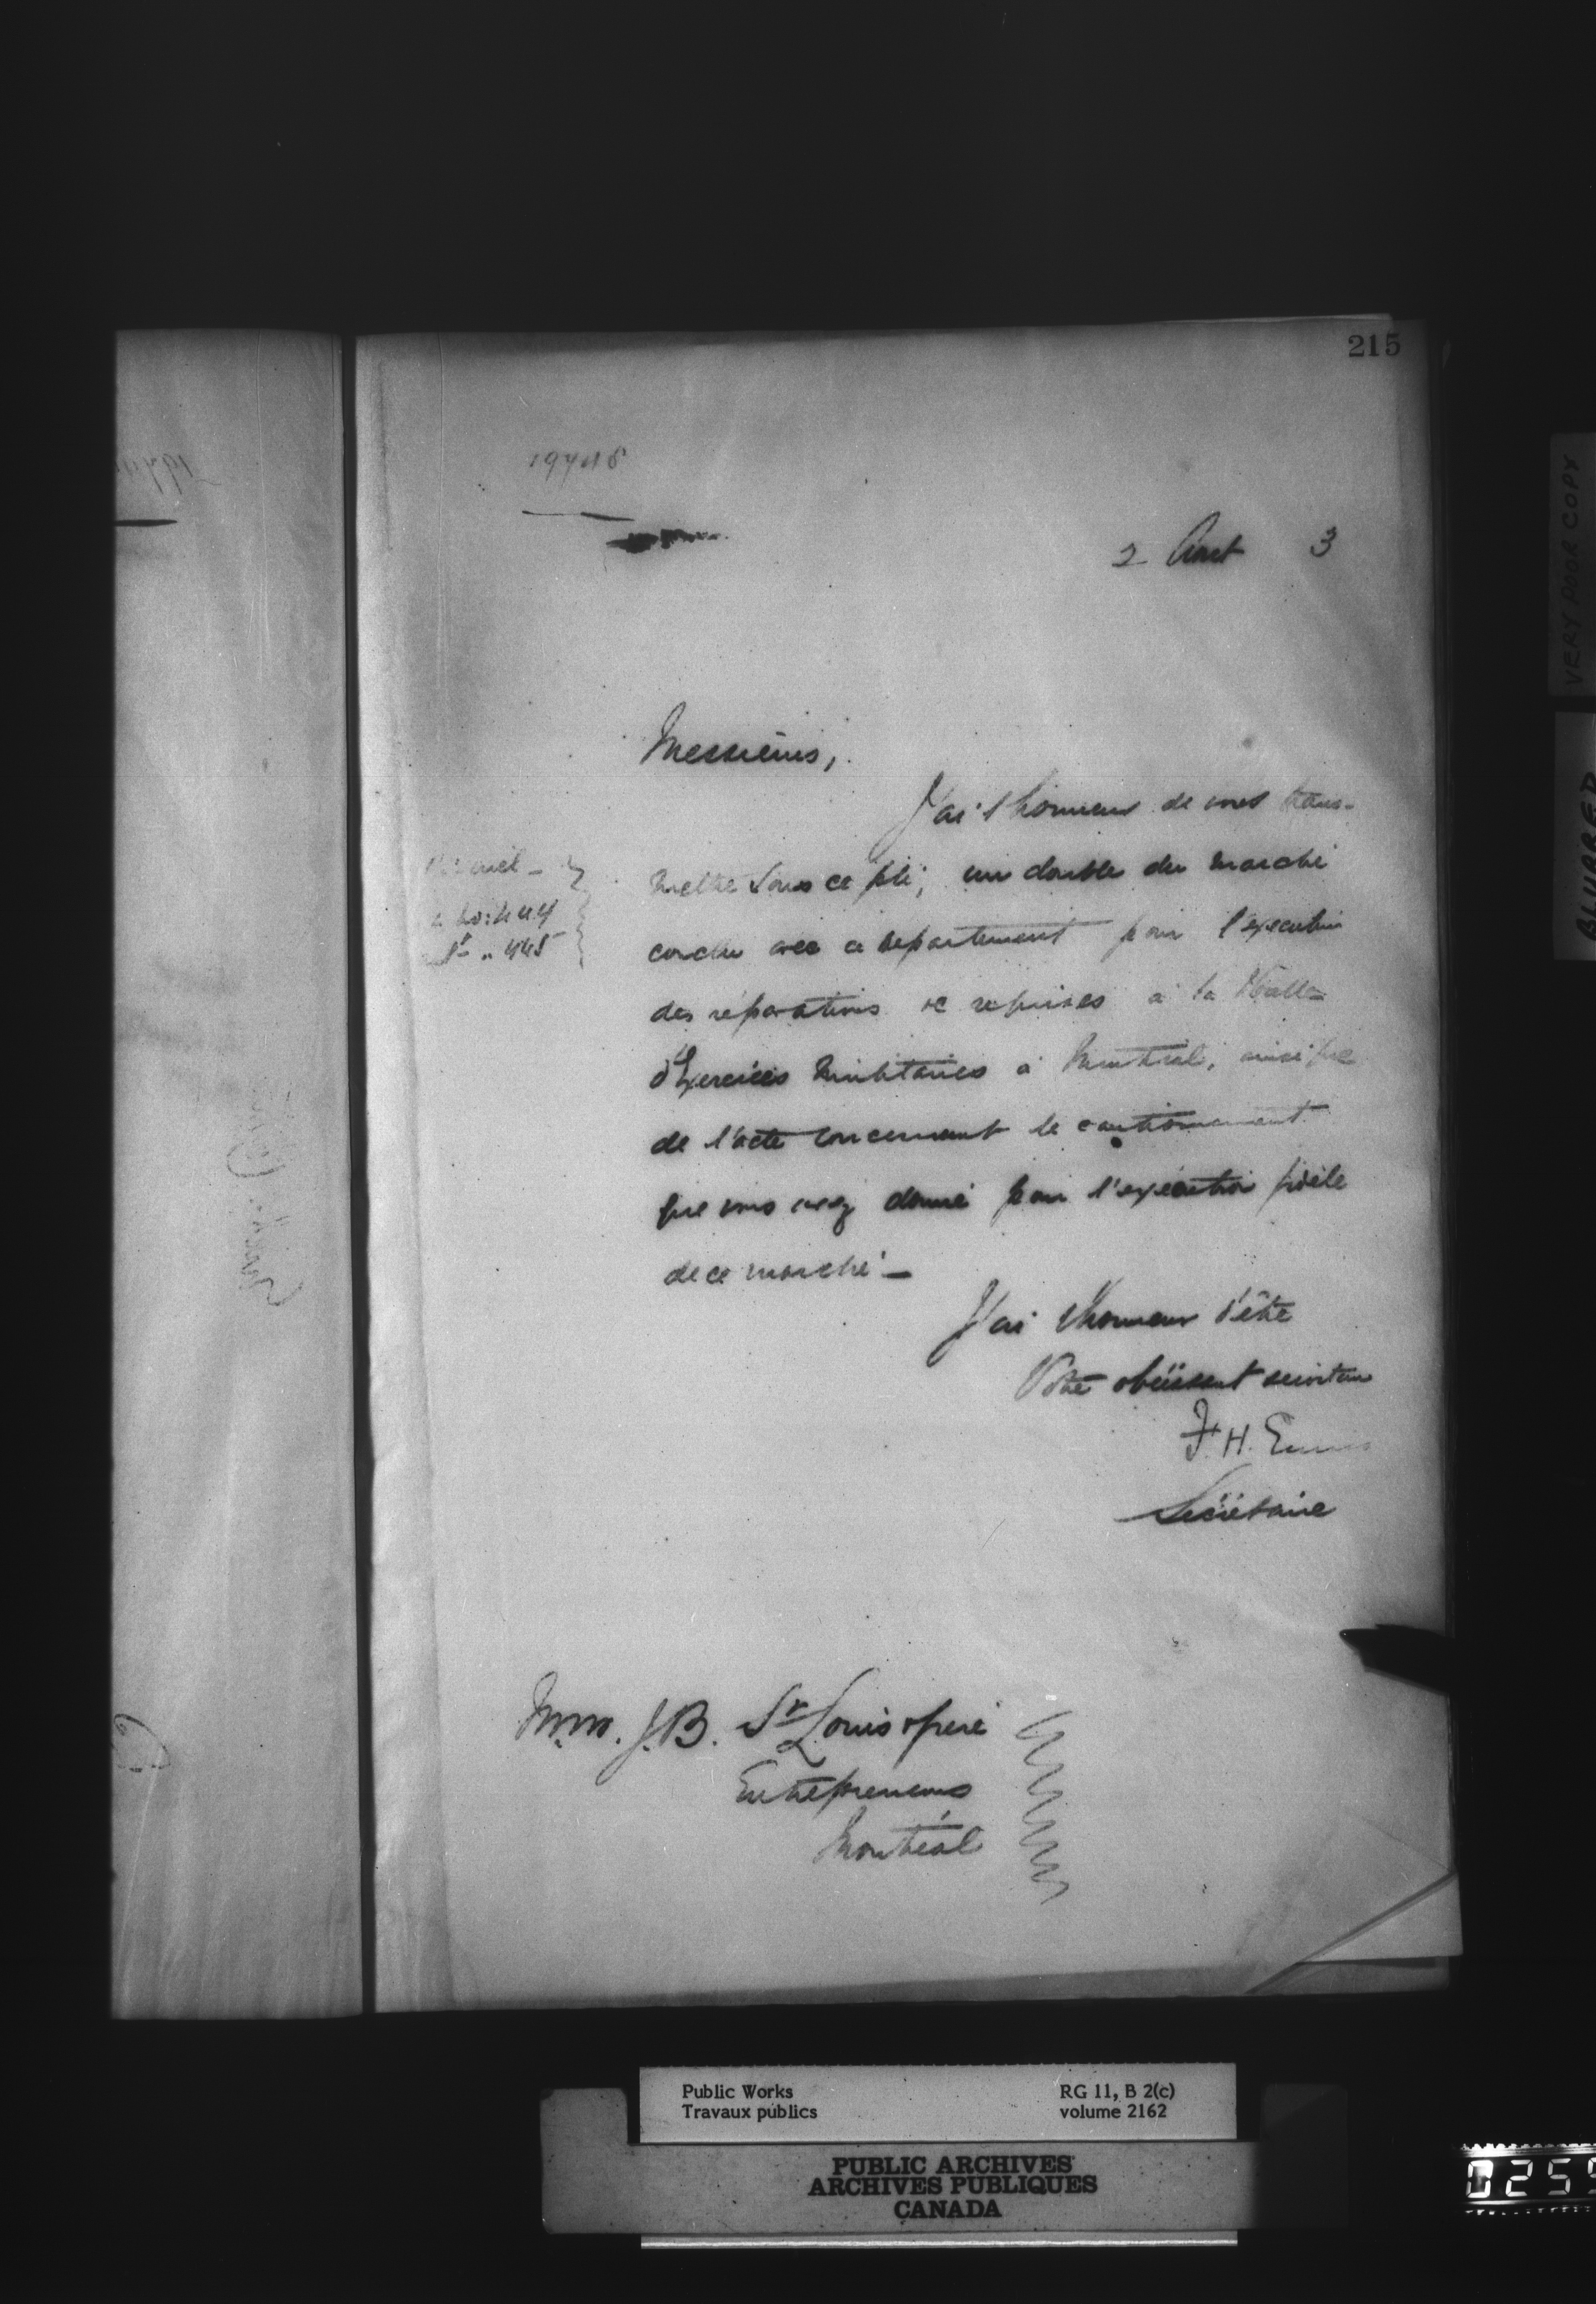 215
19748
2 Aout 3
Messieurs,
J'ai l'honneur de vous trans-
mettre sous ce pli, un double du marché
conclu avec ce departement pour l'execution
des réparations et reprises à la Halle
d'Exercices Militaires à Montréal, ainsi que
de l'acte concernant le cautionnement
que vous avez donné pour l'exécution fidèle
de ce marché —
J'ai l'honneur d'être
Votre obéissant serviteur
F. H. Ennis
Secrétaire
Mm. J.B. St Louis & frère
Entrepreneurs
Montréal
VERY POOR COPY
BLURRED
Public Works
Travaux publics
RG 11, B 2(c)
volume 2162
PUBLIC ARCHIVES
ARCHIVES PUBLIQUES
CANADA